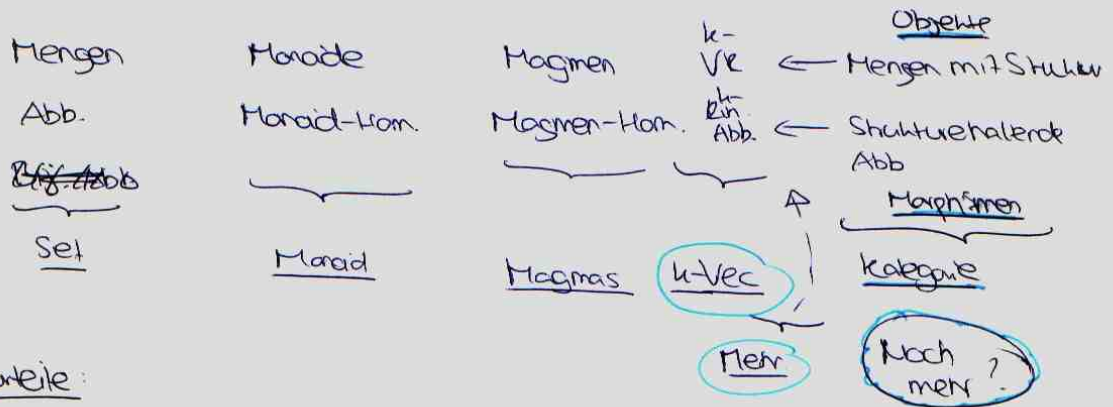 Objekte
Mengen Monoide Magmen k-VR ← Mengen mit Struktur
Abb. Monoid-Hom. Magmen-Hom. k-Lin. Abb. ← Strukturerhaltende Abb
Morphismen
Set Monoid Magmas k-Vec Kategorie
Mehr Noch mehr?